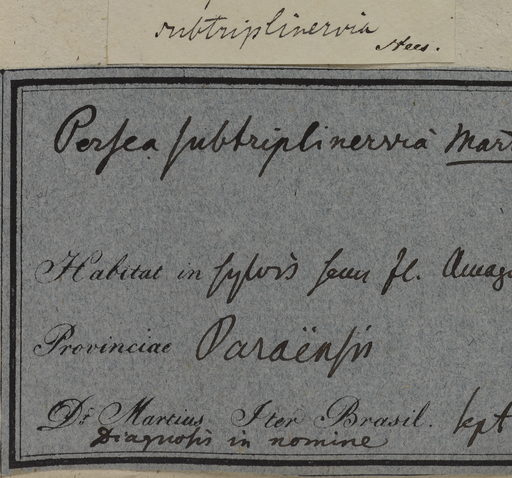 subtriplinervia
Nees.
Persea subtriplinervia Mart
Habitat in sylvis secus fl. Amazo
Provinciae Paraënsis
Dr. Martius Iter Brasil. Spt
Diagnosis in nomine